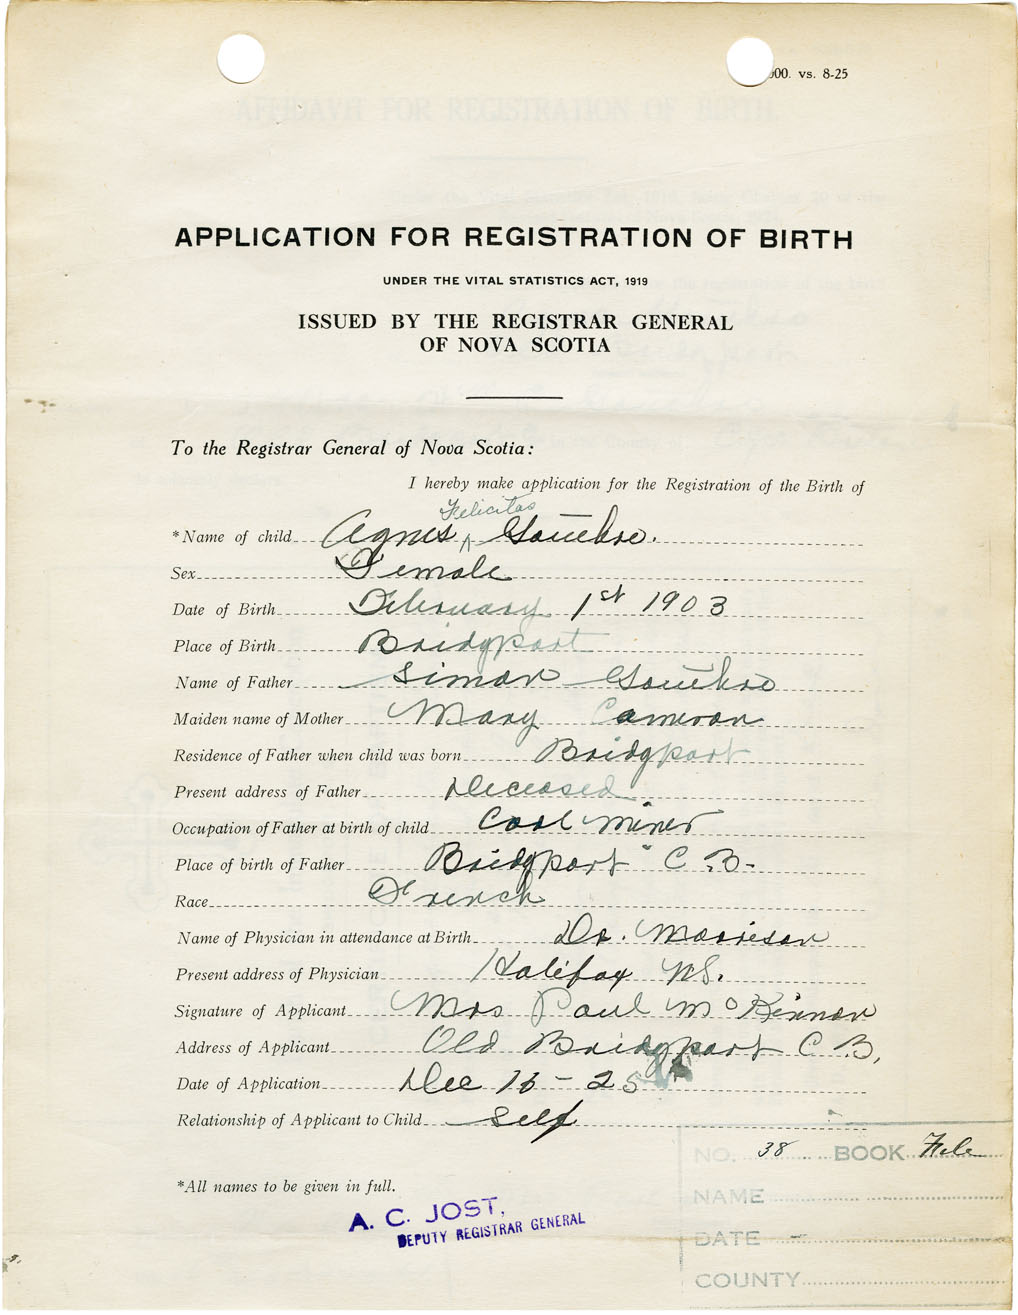 000. vs. 8-25
APPLICATION FOR REGISTRATION OF BIRTH
UNDER THE VITAL STATISTICS ACT, 1919
ISSUED BY THE REGISTRAR GENERAL
OF NOVA SCOTIA
To the Registrar General of Nova Scotia:
I hereby make application for the Registration of the Birth of
Felicitas
*Name of child Agnes ^
Sex Female
Date of Birth February 1st 1903
Place of Birth Bridgport
Name of Father Simon
Maiden name of Mother Mary Cameron
Residence of Father when child was born Bridgport
Present address of Father Deceased
Occupation of Father at birth of child Coal Miner
Place of birth of Father Bridgport C.B.
Race French
Name of Physician in attendance at Birth Dr. Morrison
Present address of Physician Halifax N.S.
Signature of Applicant Mrs Paul McKinnon
Address of Applicant Old Bridgport C B,
Date of Application Dec 16 - 25
Relationship of Applicant to Child self
NO. 38 BOOK Fele
*All names to be given in full.
NAME
A. C. JOST,
DEPUTY REGISTRAR GENERAL
DATE
COUNTY